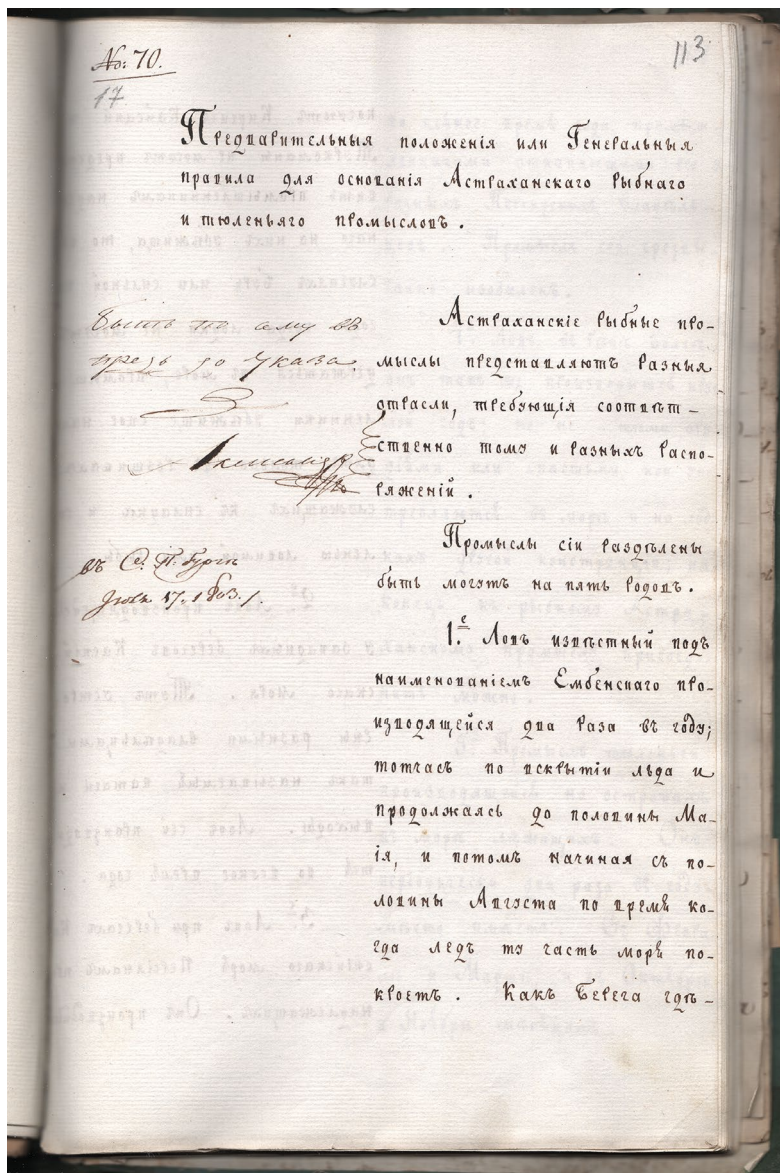 No: 70.
17
113
Предварительныя положенія или Генеральныя
правила для основанія Астраханскаго рыбнаго
и тюленьяго промысловъ.
Быть по сему въ
предь до Указа
Александръ
въ С. П. Бурге
17. 1803.
Астраханскіе рыбные про-
мыслы представляютъ разныя
отрасли, требующія соотвѣт-
ственно тому и разныхъ распо-
ряженій.
Промыслы сіи раздѣлены
быть могутъ на пять родовъ.
1.е Ловъ извѣстный подъ
наименованіемъ Ембенскаго про-
изводящейся два раза въ году;
тотчасъ по вскрытіи льда и
продолжаясь до половины Ма-
ія, и потомъ начиная съ по-
ловины Августа по время ко-
гда ледъ ту часть моря по-
кроетъ. Какъ Берега гдѣ-